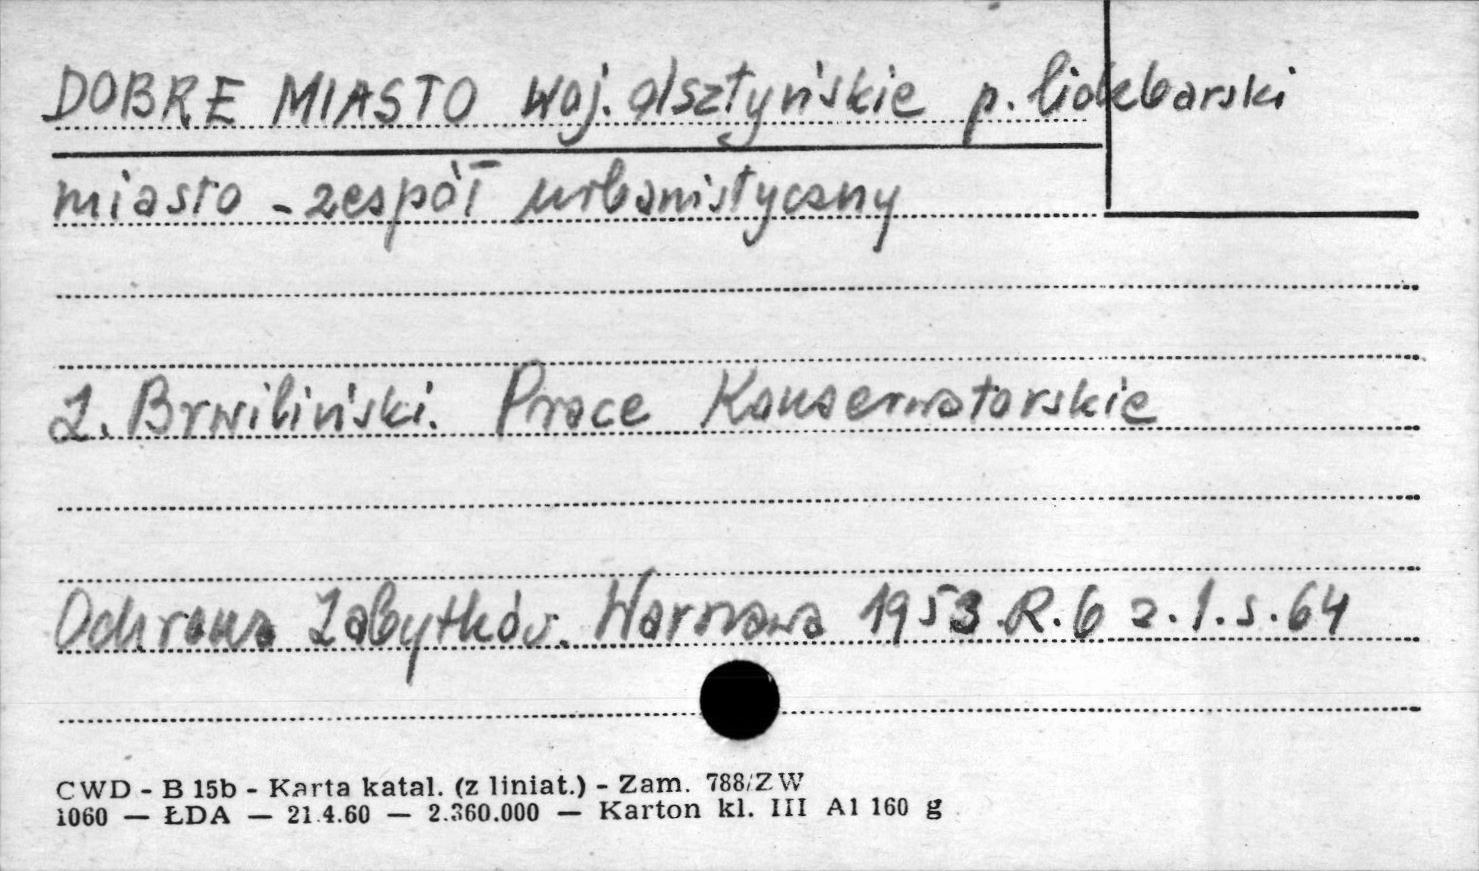 DOBRE MIASTO woj. olsztyńskie p. lidzbarski
miasto - zespół urbanistyczny
L. Brwiliński. Prace Konserwatorskie
Ochrona Zabytków. Warszawa 1953. R. 6 z. 1. s. 64
CWD - B 15b - Karta katal. (z liniat.) - Zam. 788/ZW
1060 — ŁDA — 21.4.60 — 2.360.000 — Karton kl. III A1 160 g